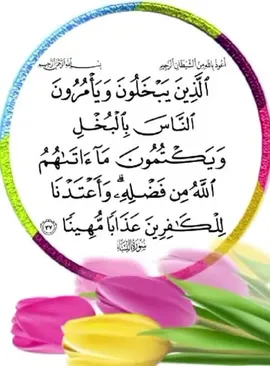 أعوذ بالله من الشيطان الرجيم بسم الله الرحمن الرحيم
ٱلَّذِينَ يَبۡخَلُونَ وَيَأۡمُرُونَ
ٱلنَّاسَ بِٱلۡبُخۡلِ
وَيَكۡتُمُونَ مَآ ءَاتَىٰهُمُ
ٱللَّهُ مِن فَضۡلِهِۦۗ وَأَعۡتَدۡنَا
لِلۡكَٰفِرِينَ عَذَابٗا مُّهِينٗا ٣٧
سورة النساء